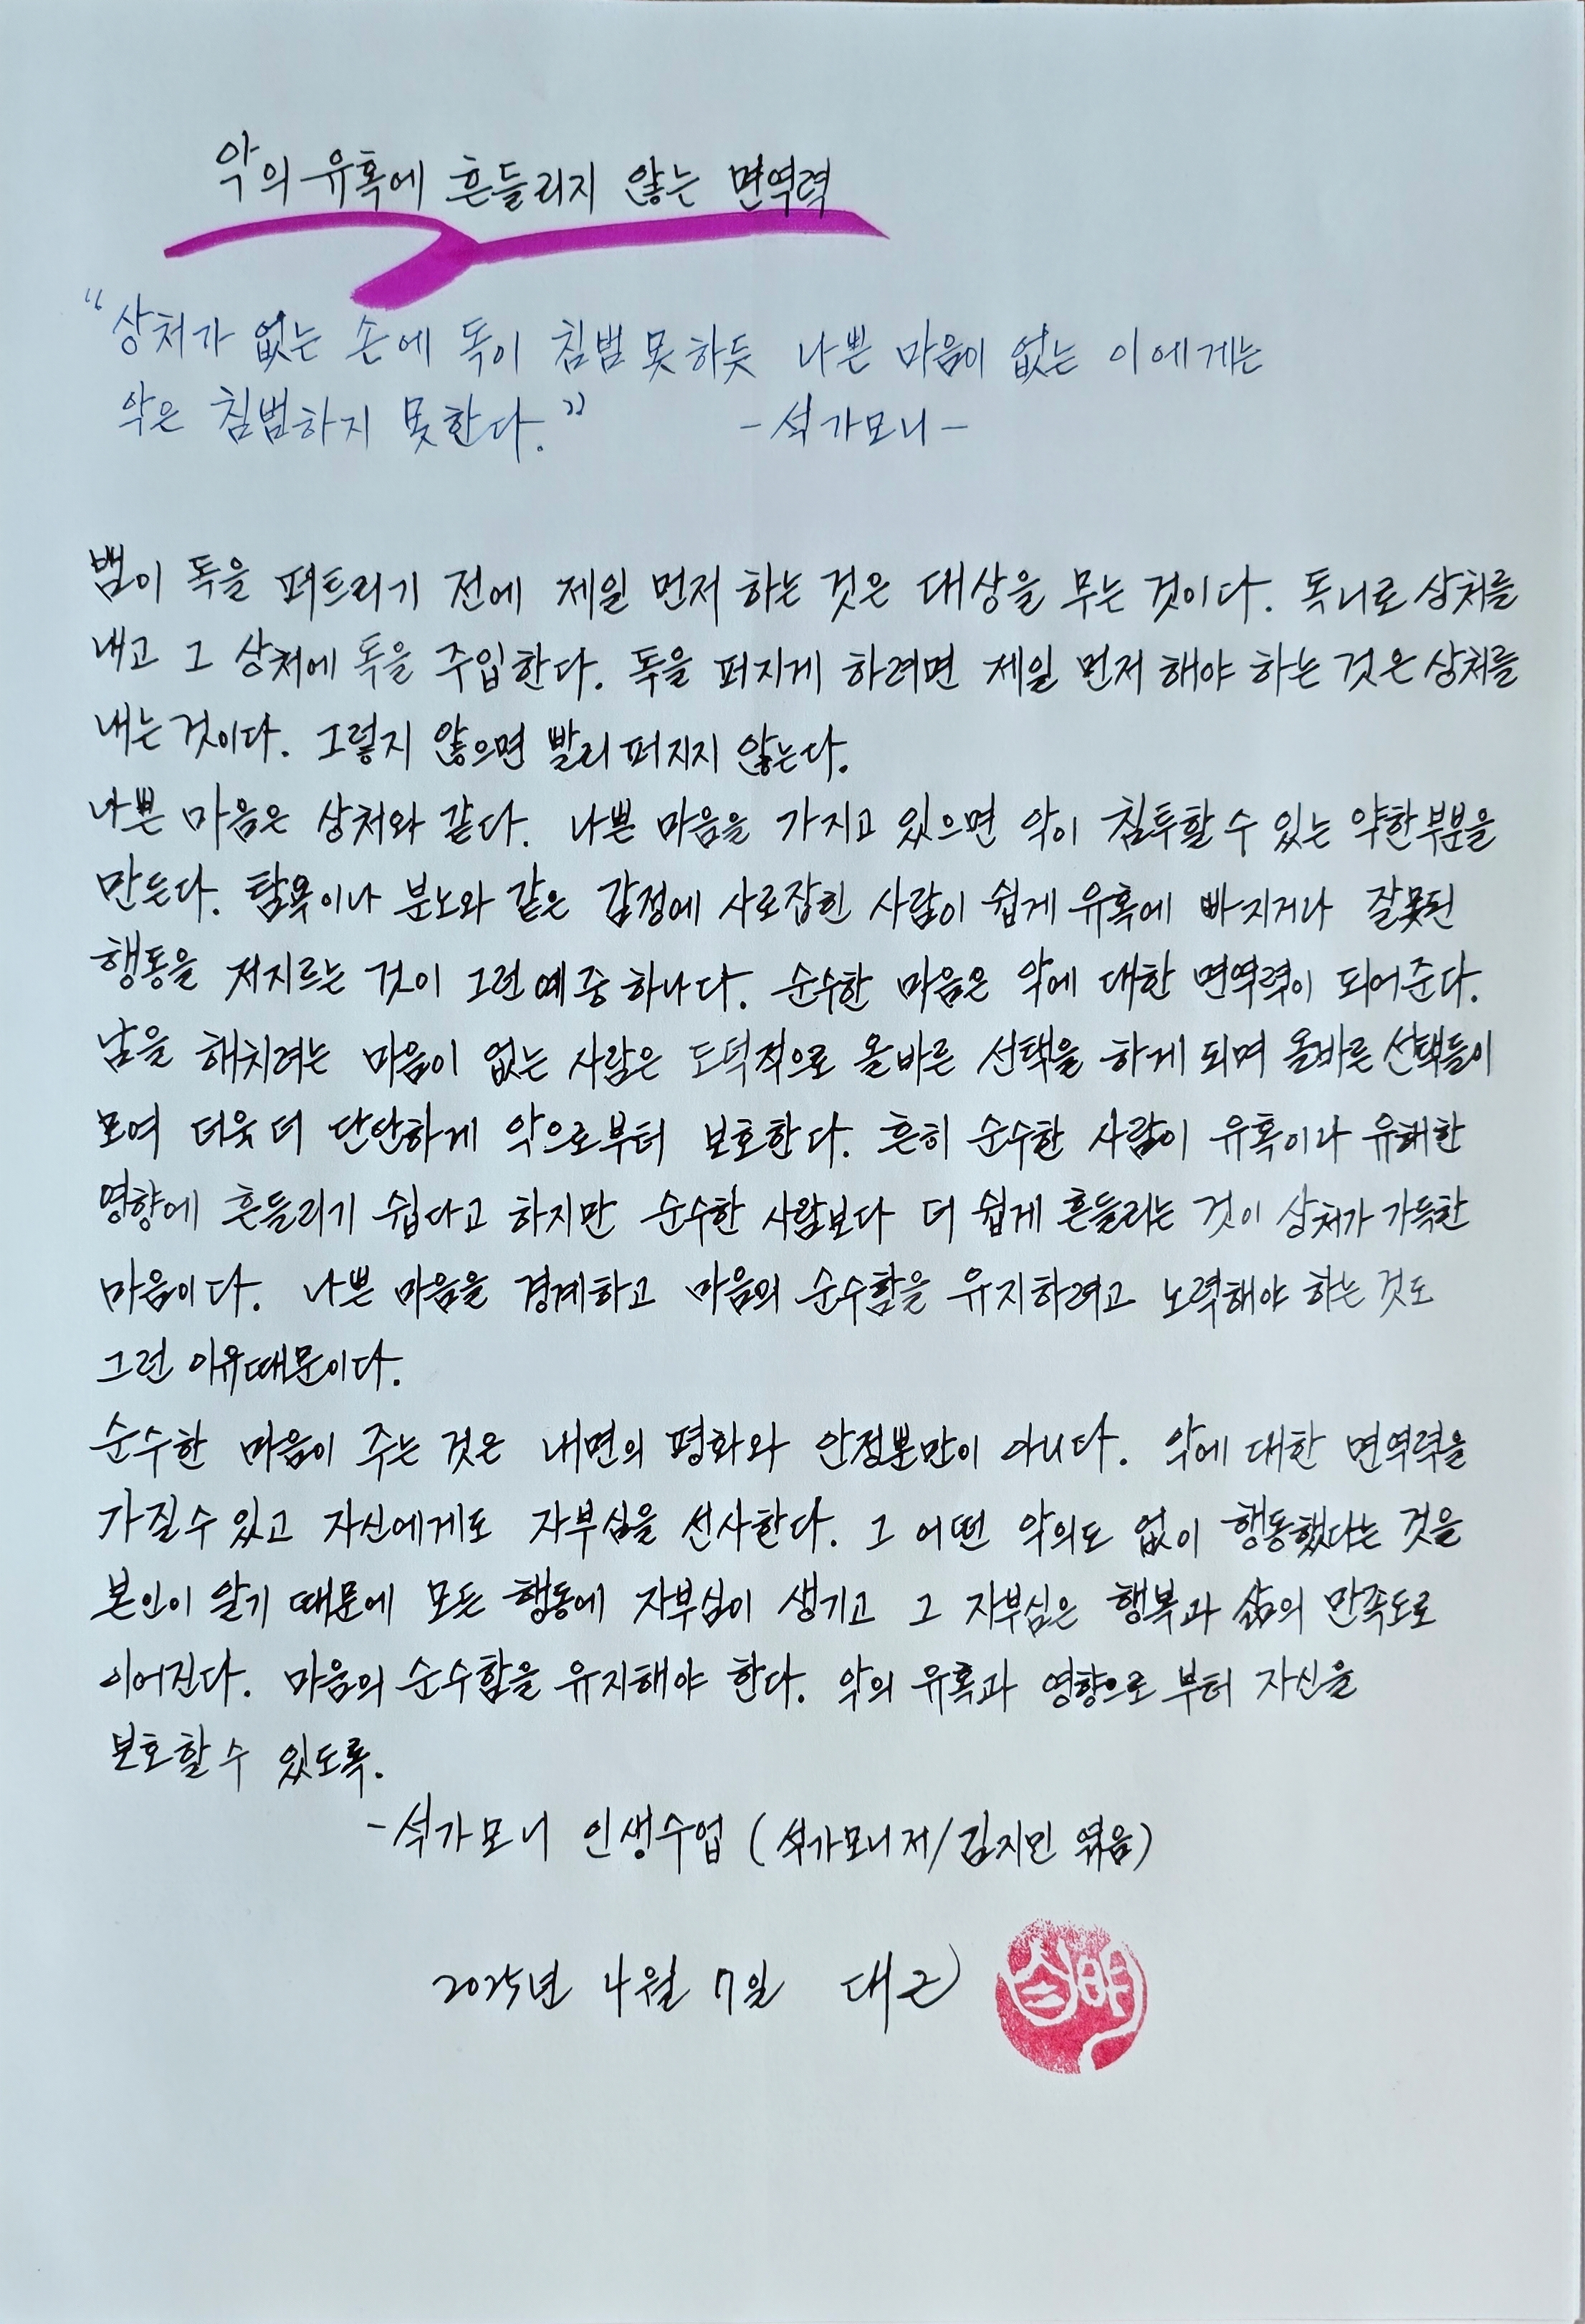 악의 유혹에 흔들리지 않는 면역력
“상처가 없는 손에 독이 침범 못하듯 나쁜 마음이 없는 이에게는
악은 침범하지 못한다.” -석가모니-
뱀이 독을 퍼트리기 전에 제일 먼저 하는 것은 대상을 무는 것이다. 독니로 상처를
내고 그 상처에 독을 주입한다. 독을 퍼지게 하려면 제일 먼저 해야 하는 것은 상처를
내는 것이다. 그렇지 않으면 빨리 퍼지지 않는다.
나쁜 마음은 상처와 같다. 나쁜 마음을 가지고 있으면 악이 침투할 수 있는 약한 부분을
만든다. 탐욕이나 분노와 같은 감정에 사로잡힌 사람이 쉽게 유혹에 빠지거나 잘못된
행동을 저지르는 것이 그런 예 중 하나다. 순수한 마음은 악에 대한 면역력이 되어준다.
남을 해치려는 마음이 없는 사람은 도덕적으로 올바른 선택을 하게 되며 올바른 선택들이
모여 더욱 더 단단하게 악으로부터 보호한다. 흔히 순수한 사람이 유혹이나 유해한
영향에 흔들리기 쉽다고 하지만 순수한 사람보다 더 쉽게 흔들리는 것이 상처가 가득한
마음이다. 나쁜 마음을 경계하고 마음의 순수함을 유지하려고 노력해야 하는 것도
그런 이유때문이다.
순수한 마음이 주는 것은 내면의 평화와 안정뿐만이 아니다. 악에 대한 면역력을
가질 수 있고 자신에게도 자부심을 선사한다. 그 어떤 악의도 없이 행동했다는 것을
본인이 알기 때문에 모든 행동에 자부심이 생기고 그 자부심은 행복과 삶의 만족도로
이어진다. 마음의 순수함을 유지해야 한다. 악의 유혹과 영향으로 부터 자신을
보호할 수 있도록.
-석가모니 인생수업 (석가모니 저/김지민 엮음)
2025년 4월 7일 대근